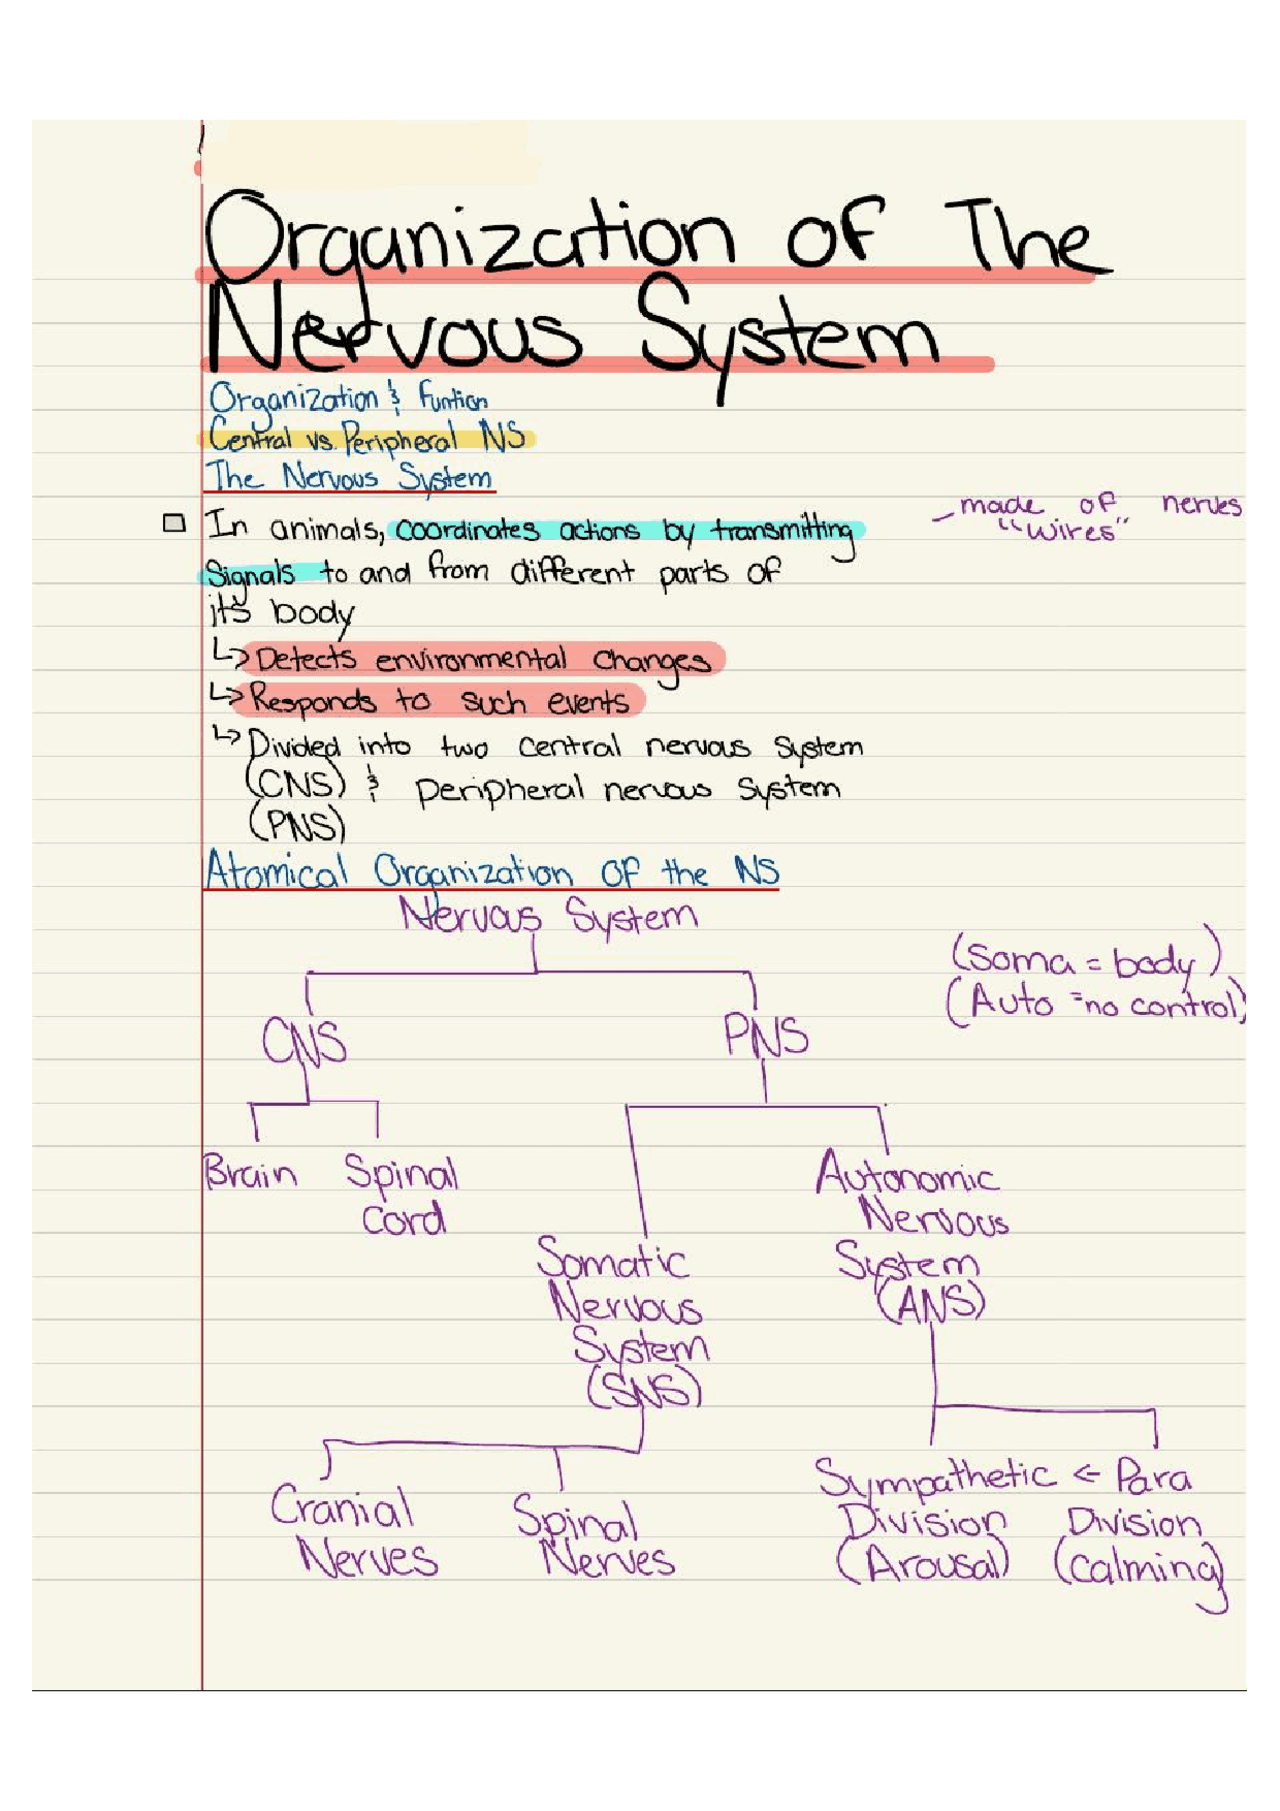 Organization of The
Nervous System
Organization & Funtion
Central vs. Peripheral NS
The Nervous System
In animals, coordinates actions by transmitting
Signals to and from different parts of
its body
↳ Detects environmental changes
↳ Responds to such events
↳ Divided into two central nervous system
(CNS) & peripheral nervous system
(PNS)
made of nerves
"wires"
Atomical Organization of the NS
Nervous System
(Soma = body)
(Auto = no control)
CNS PNS
Brain Spinal
Cord
Somatic
Nervous
System
(SNS)
Autonomic
Nervous
System
(ANS)
Cranial
Nerves
Spinal
Nerves
Sympathetic ← Para
Division Division
(Arousal) (calming)